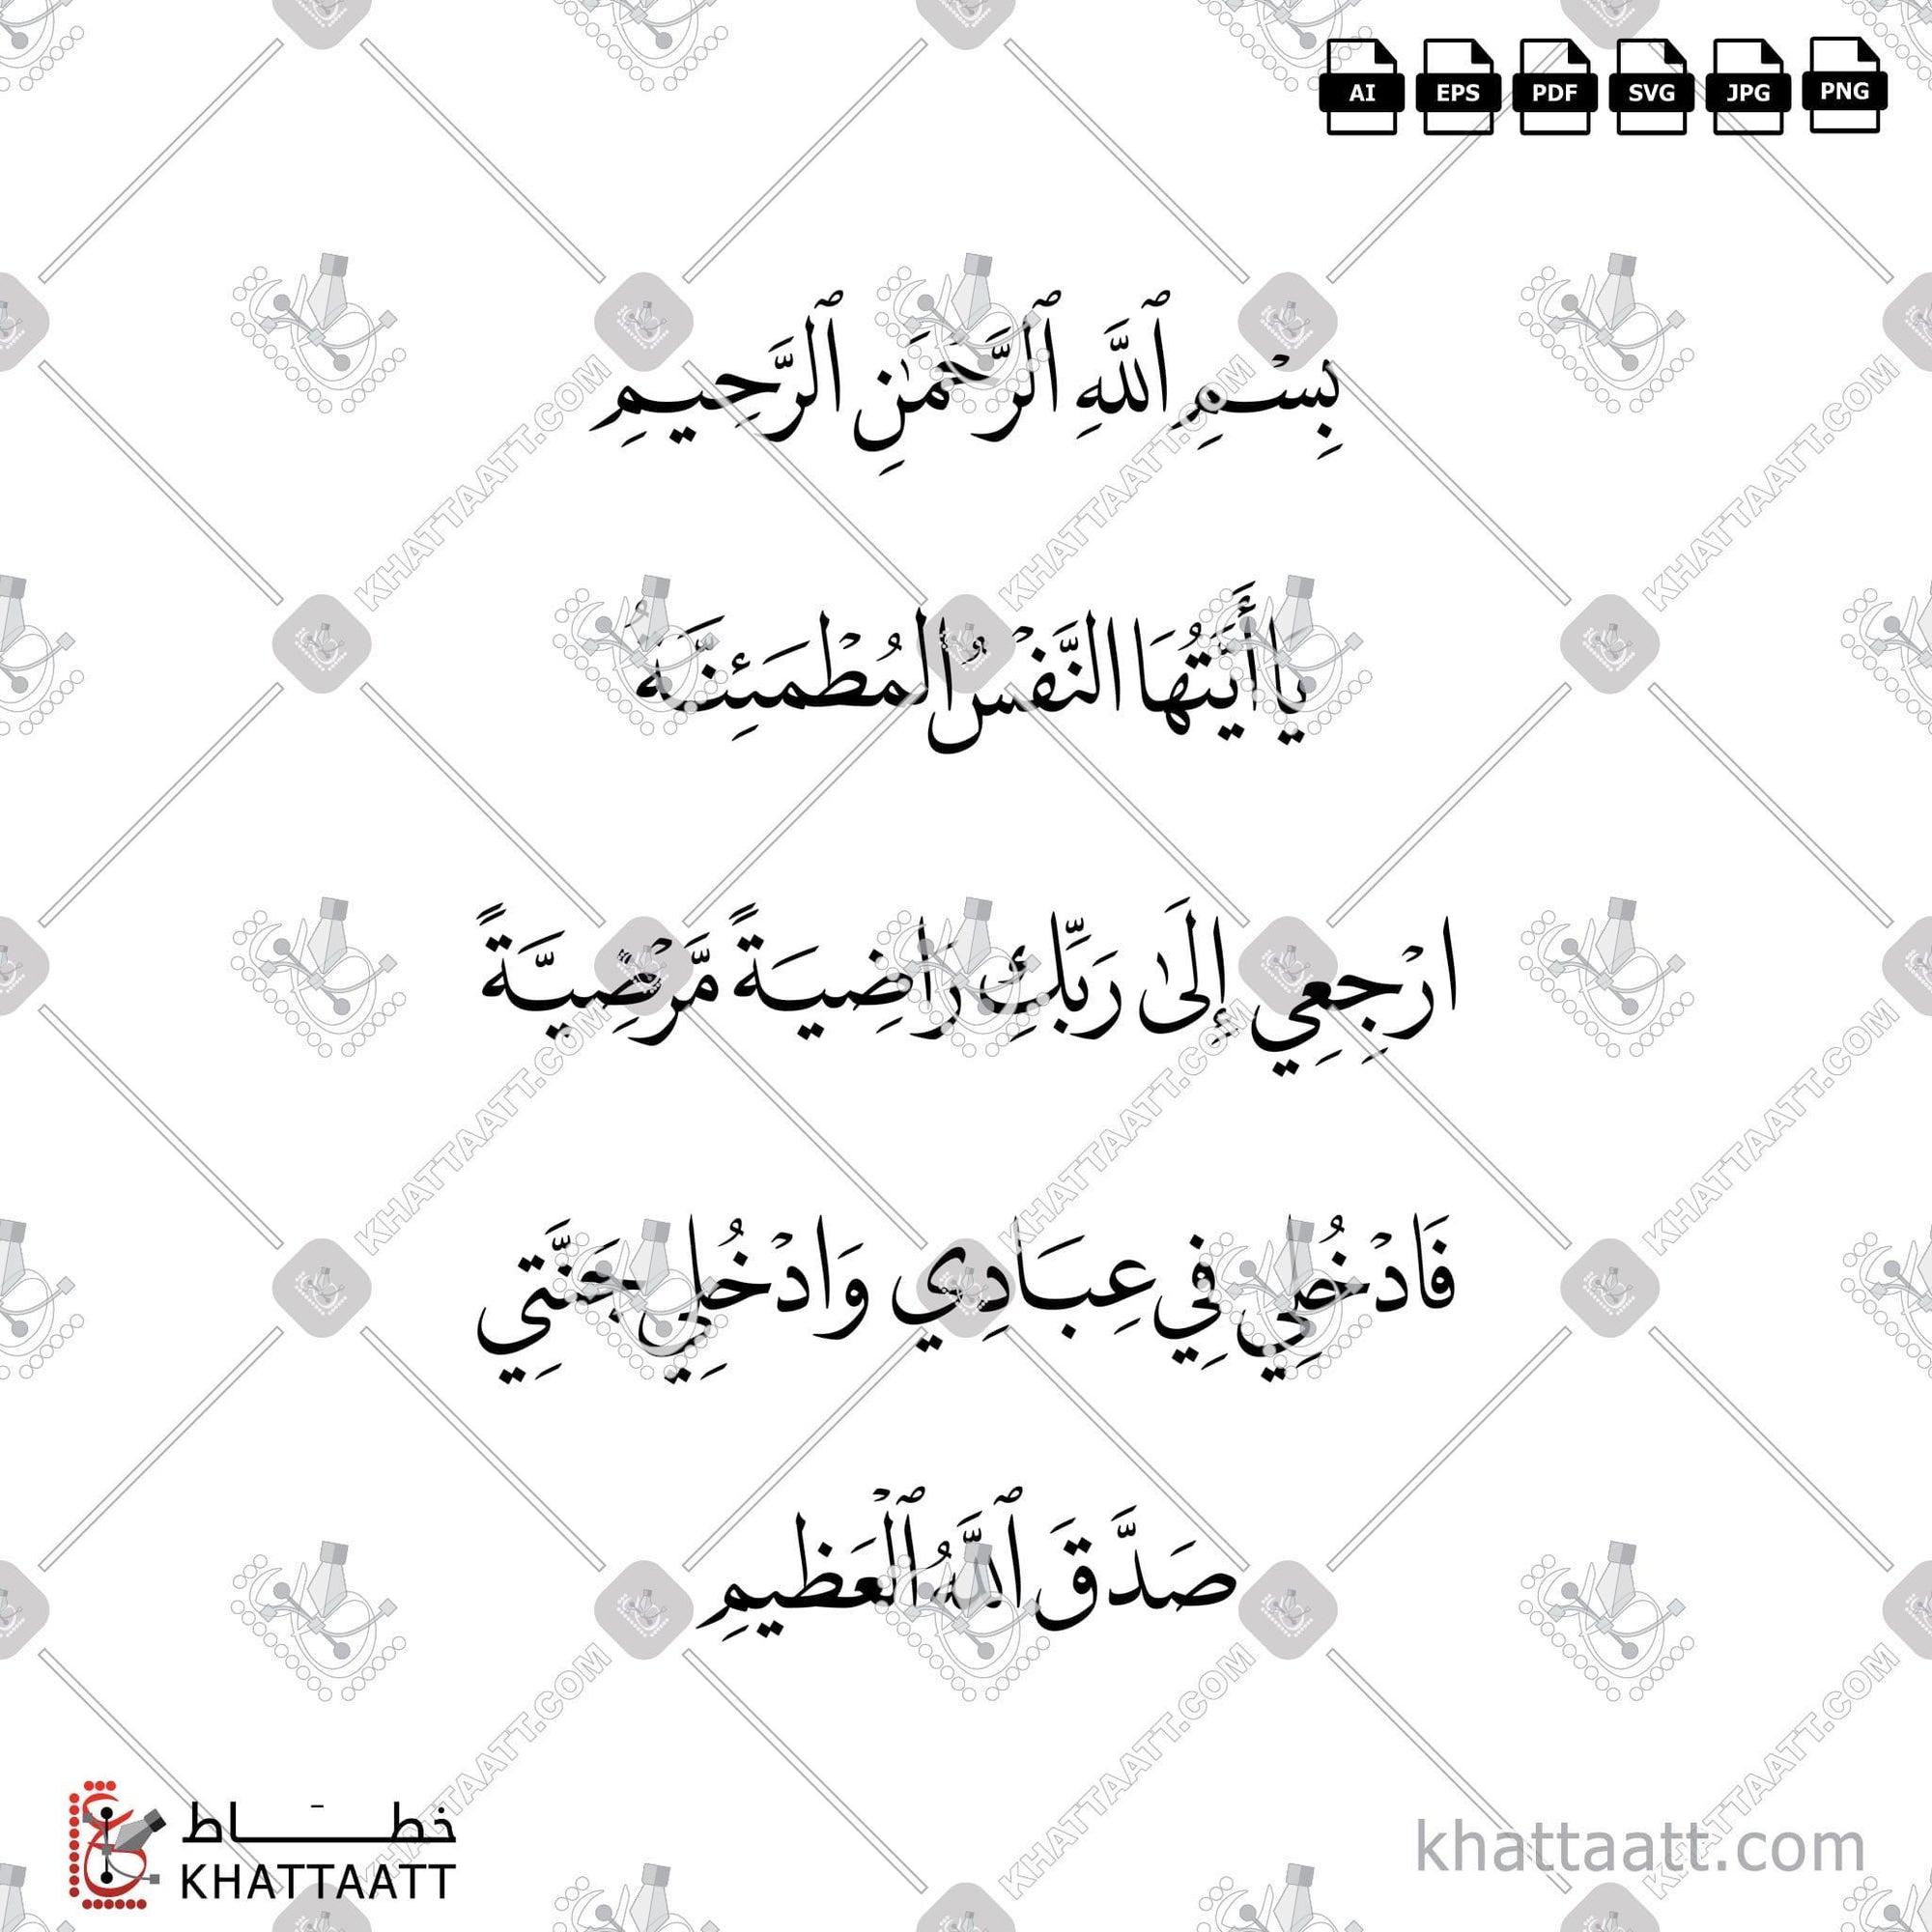 AI EPS PDF SVG JPG PNG
بِسْمِ ٱللَّهِ ٱلرَّحْمَٰنِ ٱلرَّحِيمِ
يَا أَيَّتُهَا النَّفْسُ الْمُطْمَئِنَّةُ
ارْجِعِي إِلَىٰ رَبِّكِ رَاضِيَةً مَّرْضِيَّةً
فَادْخُلِي فِي عِبَادِي وَادْخُلِي جَنَّتِي
صَدَّقَ ٱللَّهُ ٱلْعَظِيمِ
خطاط
KHATTAATT
khattaatt.com